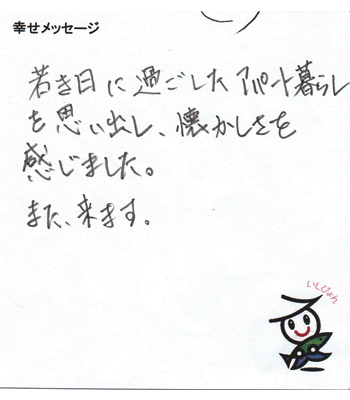 幸せメッセージ
若き日に過ごしたアパート暮らし
を思い出し、懐かしさを
感じました。
また、来ます。
いしぴょん